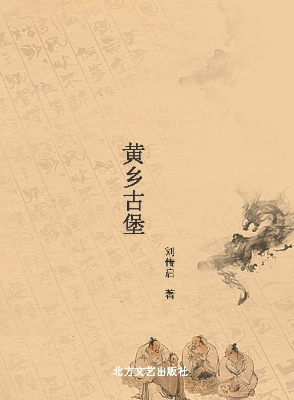 黄乡古堡
刘传启 著
北方文艺出版社